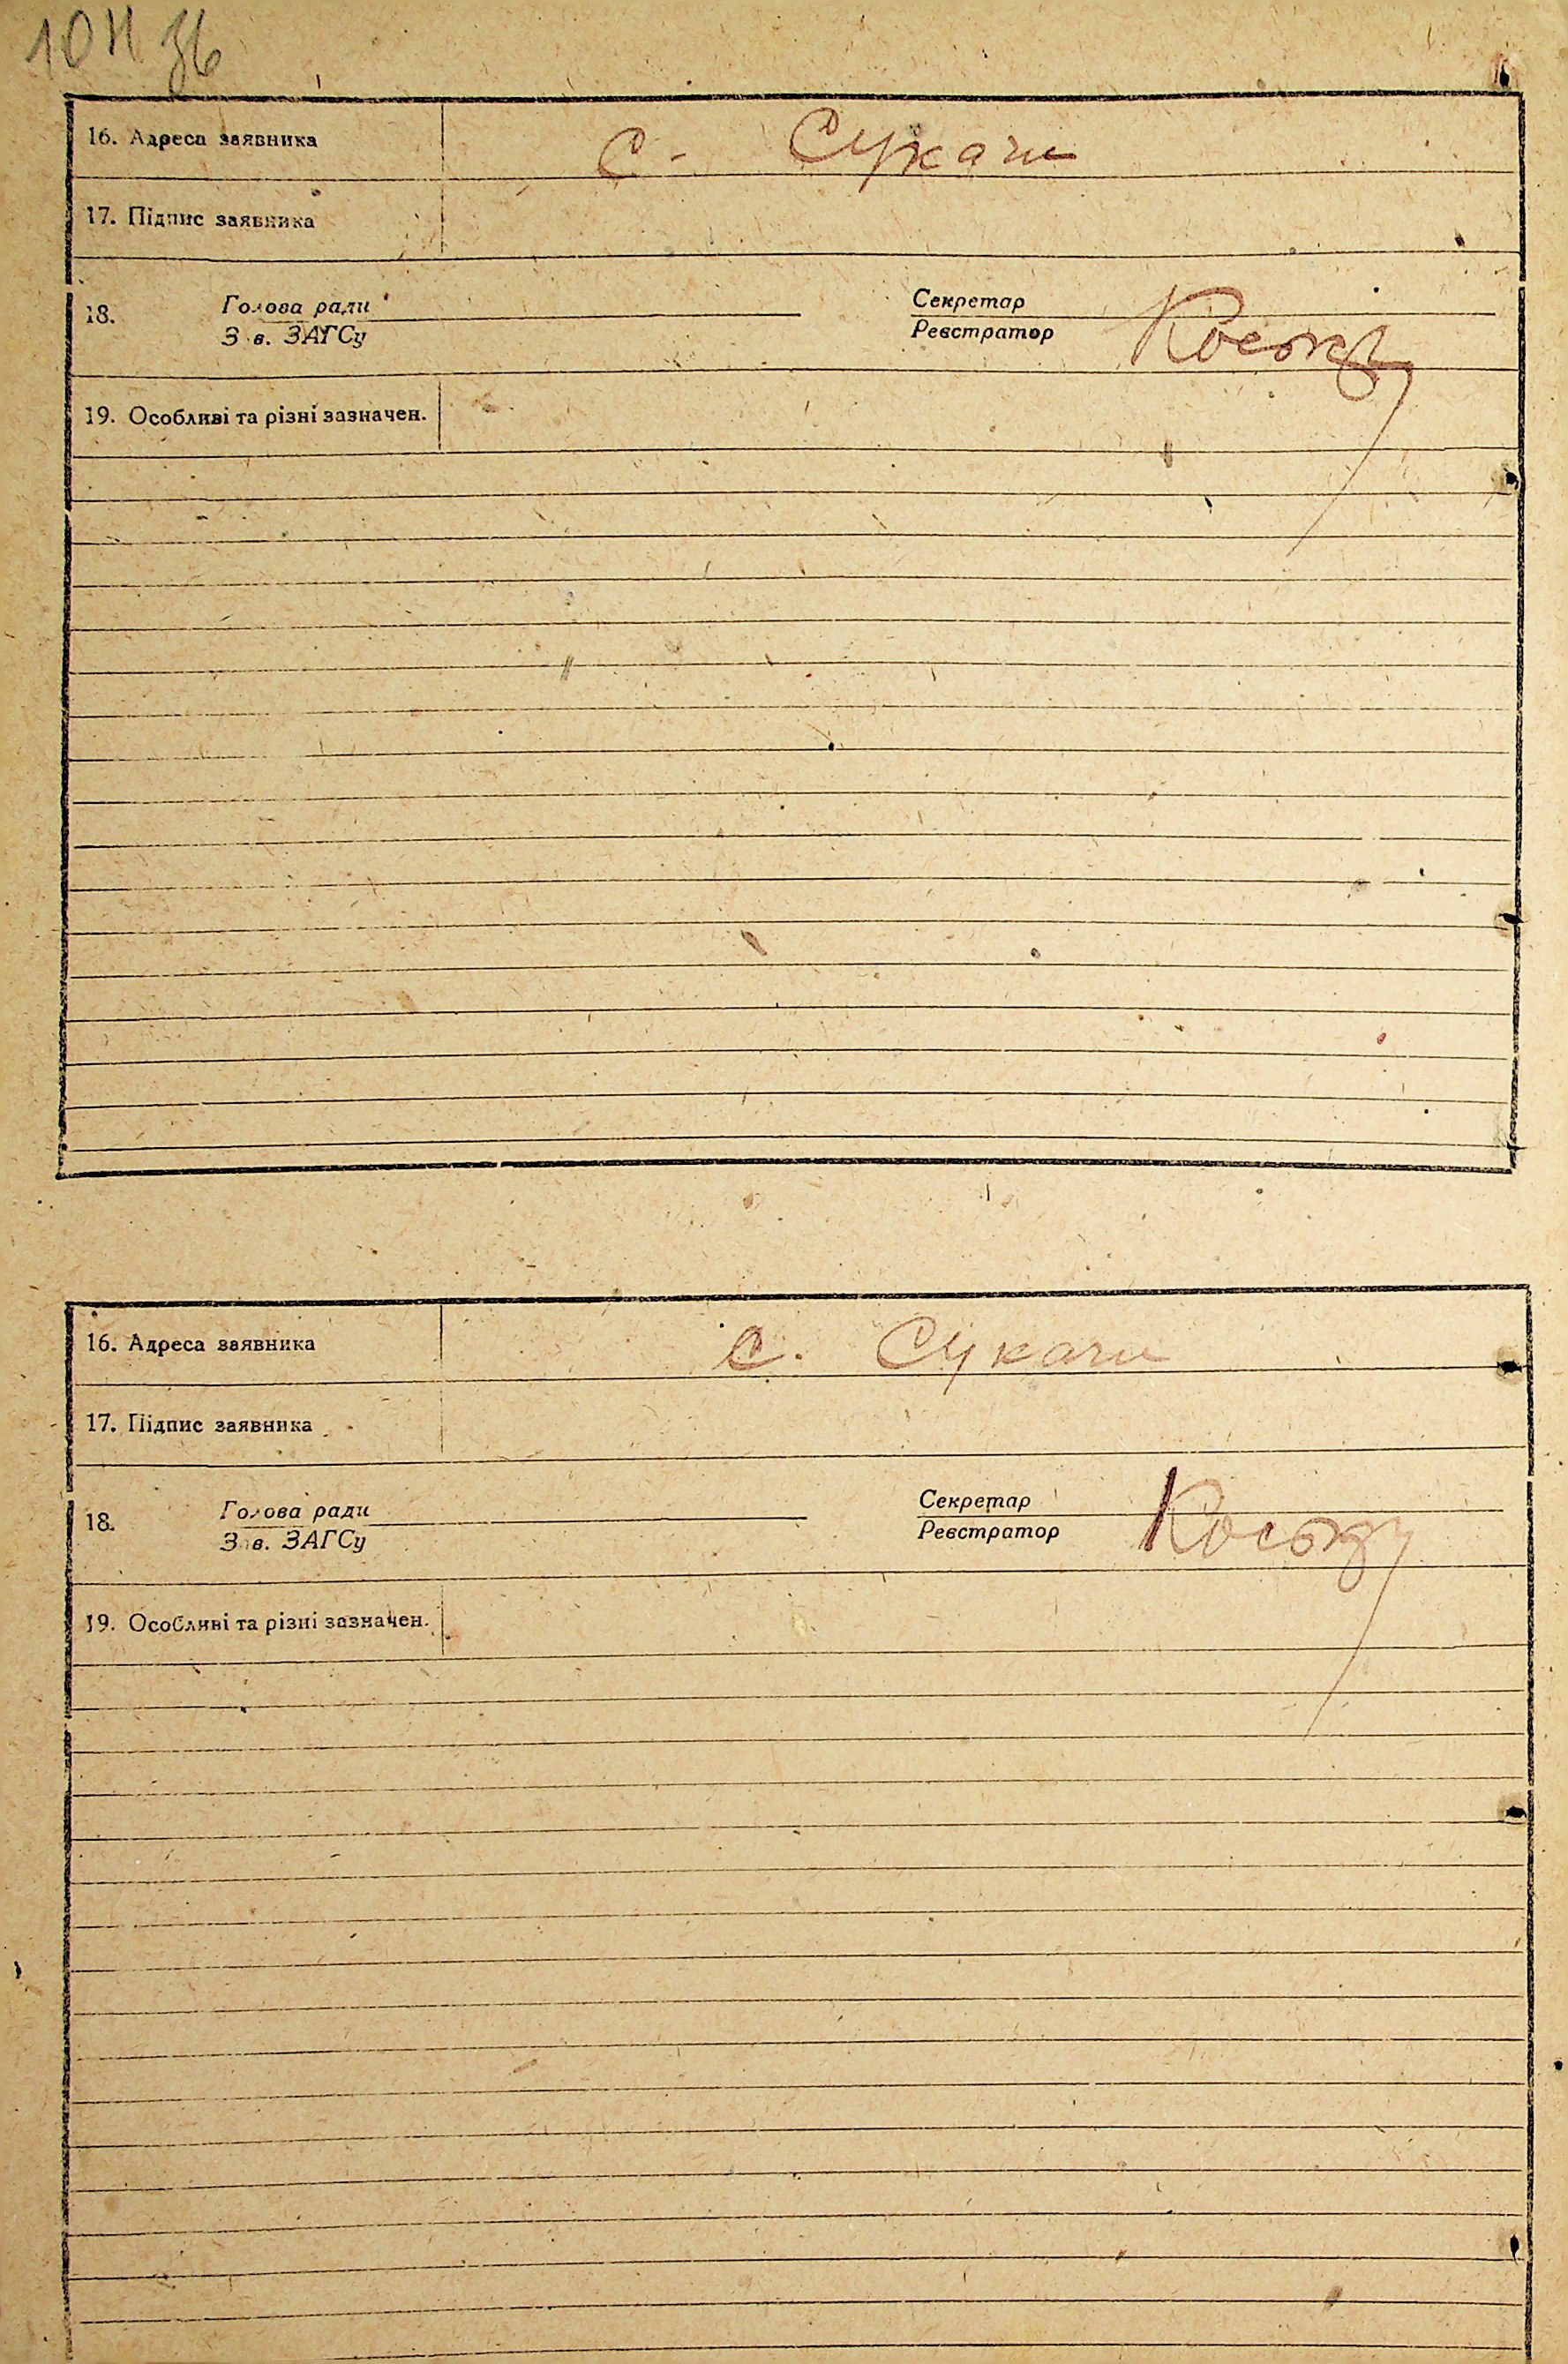 16. Адреса заявника с. Сукачи
17. Підпис заявника
Голова ради Секретар
18.
Зав. ЗАГСу Реєстратор
19. Особливі та різні зазначен.
16. Адреса заявника с. Сукачи
17. Підпис заявника
Голова ради Секретар
18.
Зав. ЗАГСу Реєстратор
19. Особливі та різні зазначен.